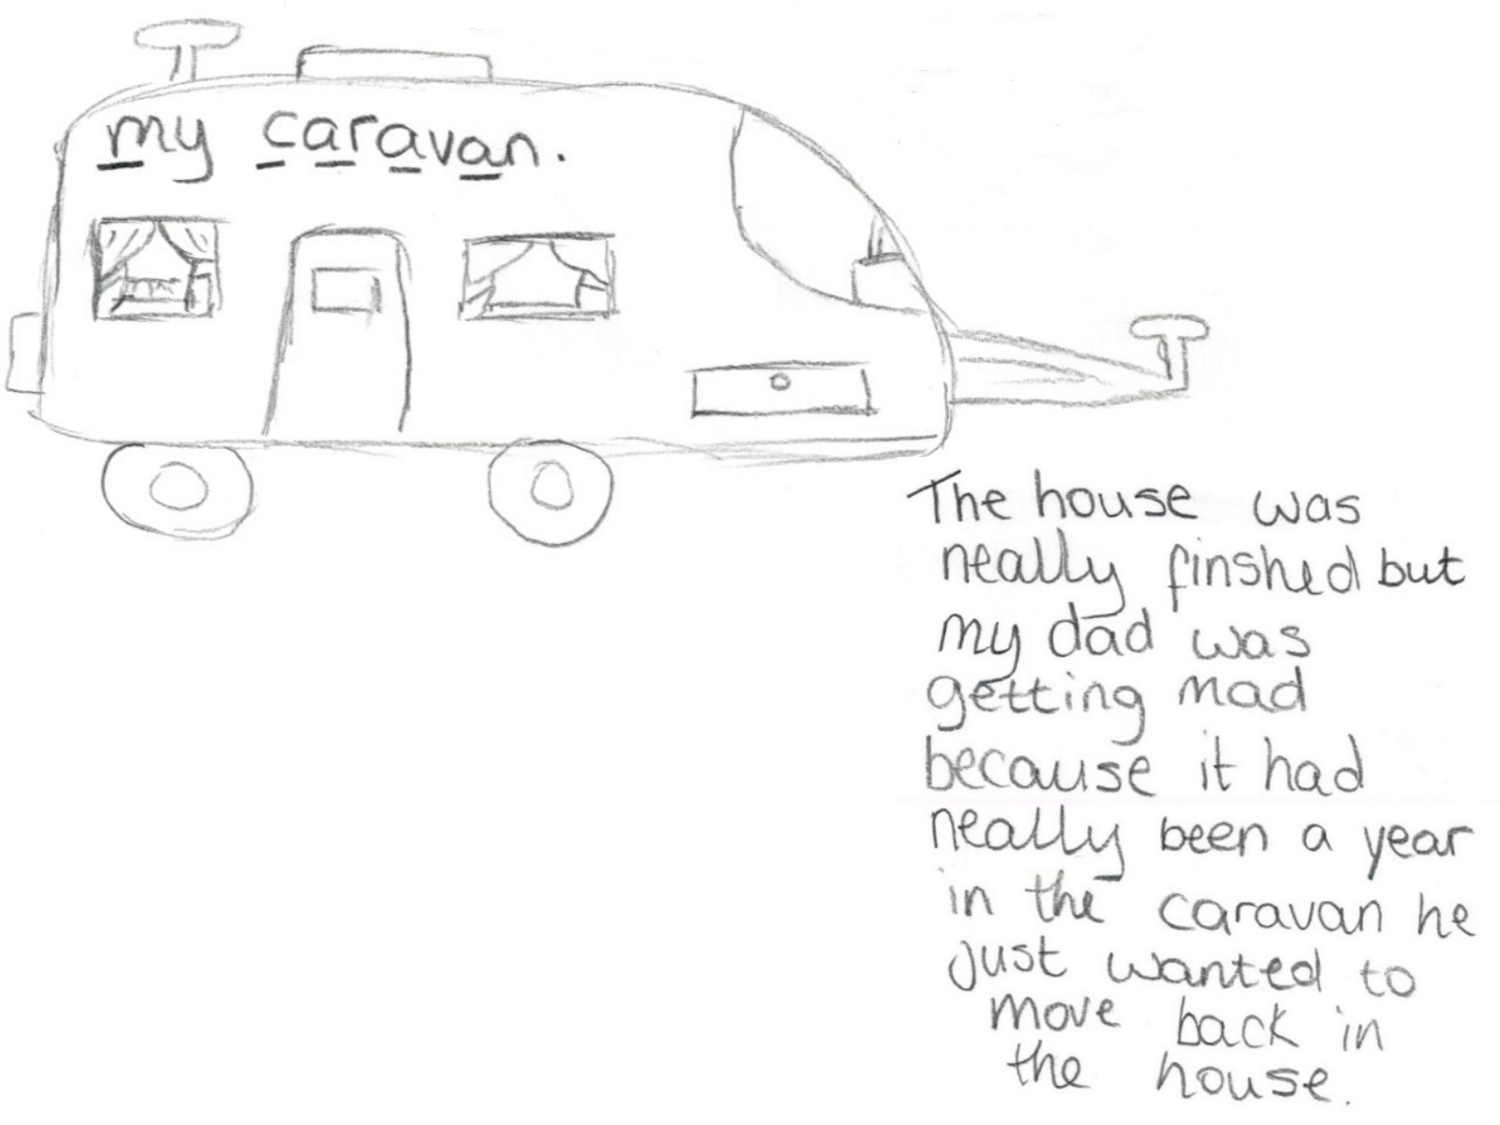 my caravan.
The house was
neally finshed but
my dad was
getting mad
because it had
neally been a year
in the caravan he
just wanted to
move back in
the house.